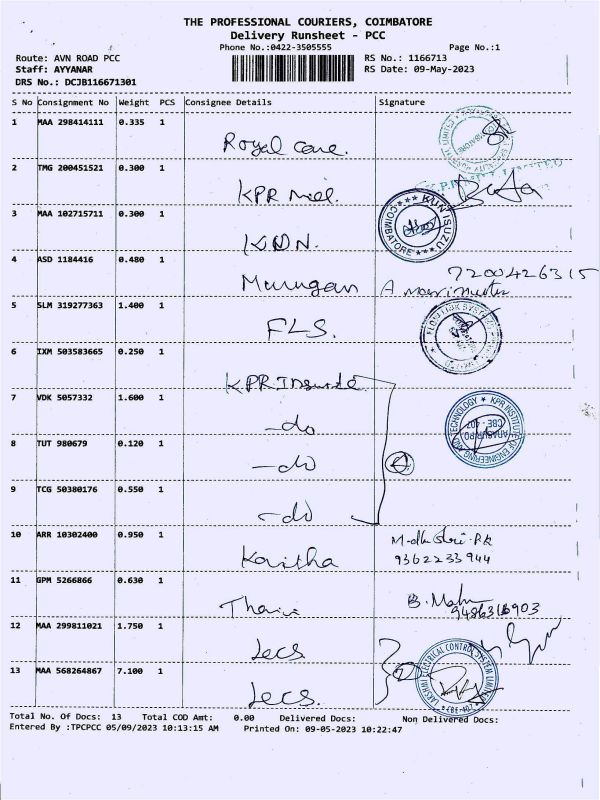 THE PROFESSIONAL COURIERS, COIMBATORE
Delivery Runsheet - PCC
Phone No.:0422-3505555 Page No.:1
Route: AVN ROAD PCC RS No.: 1166713
Staff: AYYANAR RS Date: 09-May-2023
DRS No.: DCJB116671301
S No Consignment No Weight PCS Consignee Details Signature
1 MAA 298414111 0.335 1
Royal Care.
2 TMG 200451521 0.300 1
KPR Mill.
3 MAA 102715711 0.300 1
KUN ISUZU
COIMBATORE
KUN.
4 ASD 1184416 0.480 1
7200426315
Murugan
5 SLM 319277363 1.400 1
FLS.
6 IXM 503583665 0.250 1
KPR
7 VDK 5057332 1.600 1
KPR INSTITUTE OF ENGINEERING AND TECHNOLOGY
-do
8 TUT 980679 0.120 1
-do
4
9 TCG 50380176 0.550 1
-do
10 ARR 10302400 0.950 1
9362233944
Kavitha
11 GPM 5266866 0.630 1
12 MAA 299811021 1.750 1
Lecs
13 MAA 568264867 7.100 1
2
LAKSHMI ELECTRICAL CONTROL SYSTEM LIMITED
Lecs.
Total No. Of Docs: 13 Total COD Amt: 0.00 Delivered Docs: Non Delivered Docs:
Entered By :TPCPCC 05/09/2023 10:13:15 AM Printed On: 09-05-2023 10:22:47